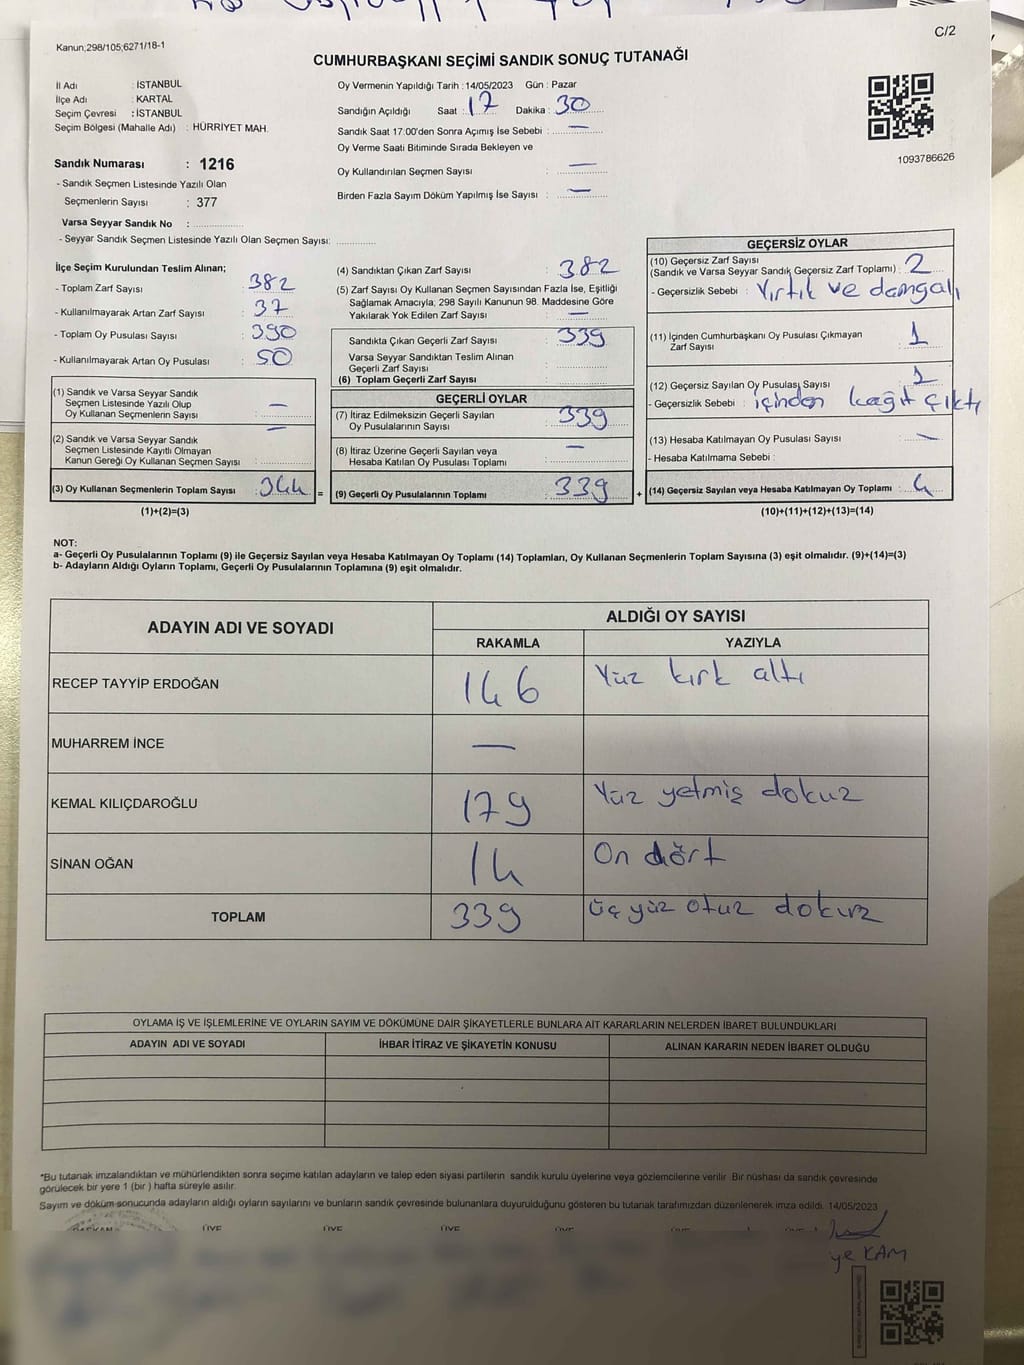 C/2
Kanun;298/105;6271/18-1
CUMHURBAŞKANI SEÇİMİ SANDIK SONUÇ TUTANAĞI
İl Adı : İSTANBUL
İlçe Adı : KARTAL
Seçim Çevresi : İSTANBUL
Seçim Bölgesi (Mahalle Adı) : HÜRRİYET MAH.
Sandık Numarası : 1216
- Sandık Seçmen Listesinde Yazılı Olan
Seçmenlerin Sayısı : 377
Varsa Seyyar Sandık No :
- Seyyar Sandık Seçmen Listesinde Yazılı Olan Seçmen Sayısı:
Oy Vermenin Yapıldığı Tarih : 14/05/2023 Gün : Pazar
Sandığın Açıldığı Saat : 17 Dakika : 30
Sandık Saat 17:00'den Sonra Açımış İse Sebebi : —
Oy Verme Saati Bitiminde Sırada Bekleyen ve
Oy Kullandırılan Seçmen Sayısı : —
Birden Fazla Sayım Döküm Yapılmış İse Sayısı : —
1093786626
İlçe Seçim Kurulundan Teslim Alınan;
- Toplam Zarf Sayısı : 382
- Kullanılmayarak Artan Zarf Sayısı : 37
- Toplam Oy Pusulası Sayısı : 390
- Kullanılmayarak Artan Oy Pusulası : 50
(1) Sandık ve Varsa Seyyar Sandık
Seçmen Listesinde Yazılı Olup
Oy Kullanan Seçmenlerin Sayısı : —
(2) Sandık ve Varsa Seyyar Sandık
Seçmen Listesinde Kayıtlı Olmayan
Kanun Gereği Oy Kullanan Seçmen Sayısı : —
(3) Oy Kullanan Seçmenlerin Toplam Sayısı : 344 =
(1)+(2)=(3)
(4) Sandıktan Çıkan Zarf Sayısı : 382
(5) Zarf Sayısı Oy Kullanan Seçmen Sayısından Fazla İse, Eşitliği
Sağlamak Amacıyla, 298 Sayılı Kanunun 98. Maddesine Göre
Yakılarak Yok Edilen Zarf Sayısı : —
Sandıkta Çıkan Geçerli Zarf Sayısı : 339
Varsa Seyyar Sandıktan Teslim Alınan
Geçerli Zarf Sayısı :
(6) Toplam Geçerli Zarf Sayısı :
GEÇERLİ OYLAR
(7) İtiraz Edilmeksizin Geçerli Sayılan
Oy Pusulalarının Sayısı : 339
(8) İtiraz Üzerine Geçerli Sayılan veya
Hesaba Katılan Oy Pusulası Toplamı : —
(9) Geçerli Oy Pusulalarının Toplamı : 339 +
GEÇERSİZ OYLAR
(10) Geçersiz Zarf Sayısı
(Sandık ve Varsa Seyyar Sandık Geçersiz Zarf Toplamı) : 2
- Geçersizlik Sebebi : Yırtık ve damgalı
(11) İçinden Cumhurbaşkanı Oy Pusulası Çıkmayan
Zarf Sayısı : 1
(12) Geçersiz Sayılan Oy Pusulası Sayısı : 1
- Geçersizlik Sebebi : içinden kağıt çıktı
(13) Hesaba Katılmayan Oy Pusulası Sayısı : —
- Hesaba Katılmama Sebebi :
(14) Geçersiz Sayılan veya Hesaba Katılmayan Oy Toplamı : 4
(10)+(11)+(12)+(13)=(14)
NOT:
a- Geçerli Oy Pusulalarının Toplamı (9) ile Geçersiz Sayılan veya Hesaba Katılmayan Oy Toplamı (14) Toplamları, Oy Kullanan Seçmenlerin Toplam Sayısına (3) eşit olmalıdır. (9)+(14)=(3)
b- Adayların Aldığı Oyların Toplamı, Geçerli Oy Pusulalarının Toplamına (9) eşit olmalıdır.
ADAYIN ADI VE SOYADI
ALDIĞI OY SAYISI
RAKAMLA YAZIYLA
RECEP TAYYİP ERDOĞAN 146 Yüz kırk altı
MUHARREM İNCE —
KEMAL KILIÇDAROĞLU 179 Yüz yetmiş dokuz
SİNAN OĞAN 14 On dört
TOPLAM 339 üç yüz otuz dokuz
OYLAMA İŞ VE İŞLEMLERİNE VE OYLARIN SAYIM VE DÖKÜMÜNE DAİR ŞİKAYETLERLE BUNLARA AİT KARARLARIN NELERDEN İBARET BULUNDUKLARI
ADAYIN ADI VE SOYADI İHBAR İTİRAZ VE ŞİKAYETİN KONUSU ALINAN KARARIN NEDEN İBARET OLDUĞU
*Bu tutanak imzalandıktan ve mühürlendikten sonra seçime katılan adayların ve talep eden siyasi partilerin sandık kurulu üyelerine veya gözlemcilerine verilir. Bir nüshası da sandık çevresinde
görülecek bir yere 1 (bir ) hafta süreyle asılır.
Sayım ve döküm sonucunda adayların aldığı oyların sayılarını ve bunların sandık çevresinde bulunanlara duyurulduğunu gösteren bu tutanak tarafımızdan düzenlenerek imza edildi. 14/05/2023
BAŞKAN ÜYE ÜYE ÜYE ÜYE
ye KAM